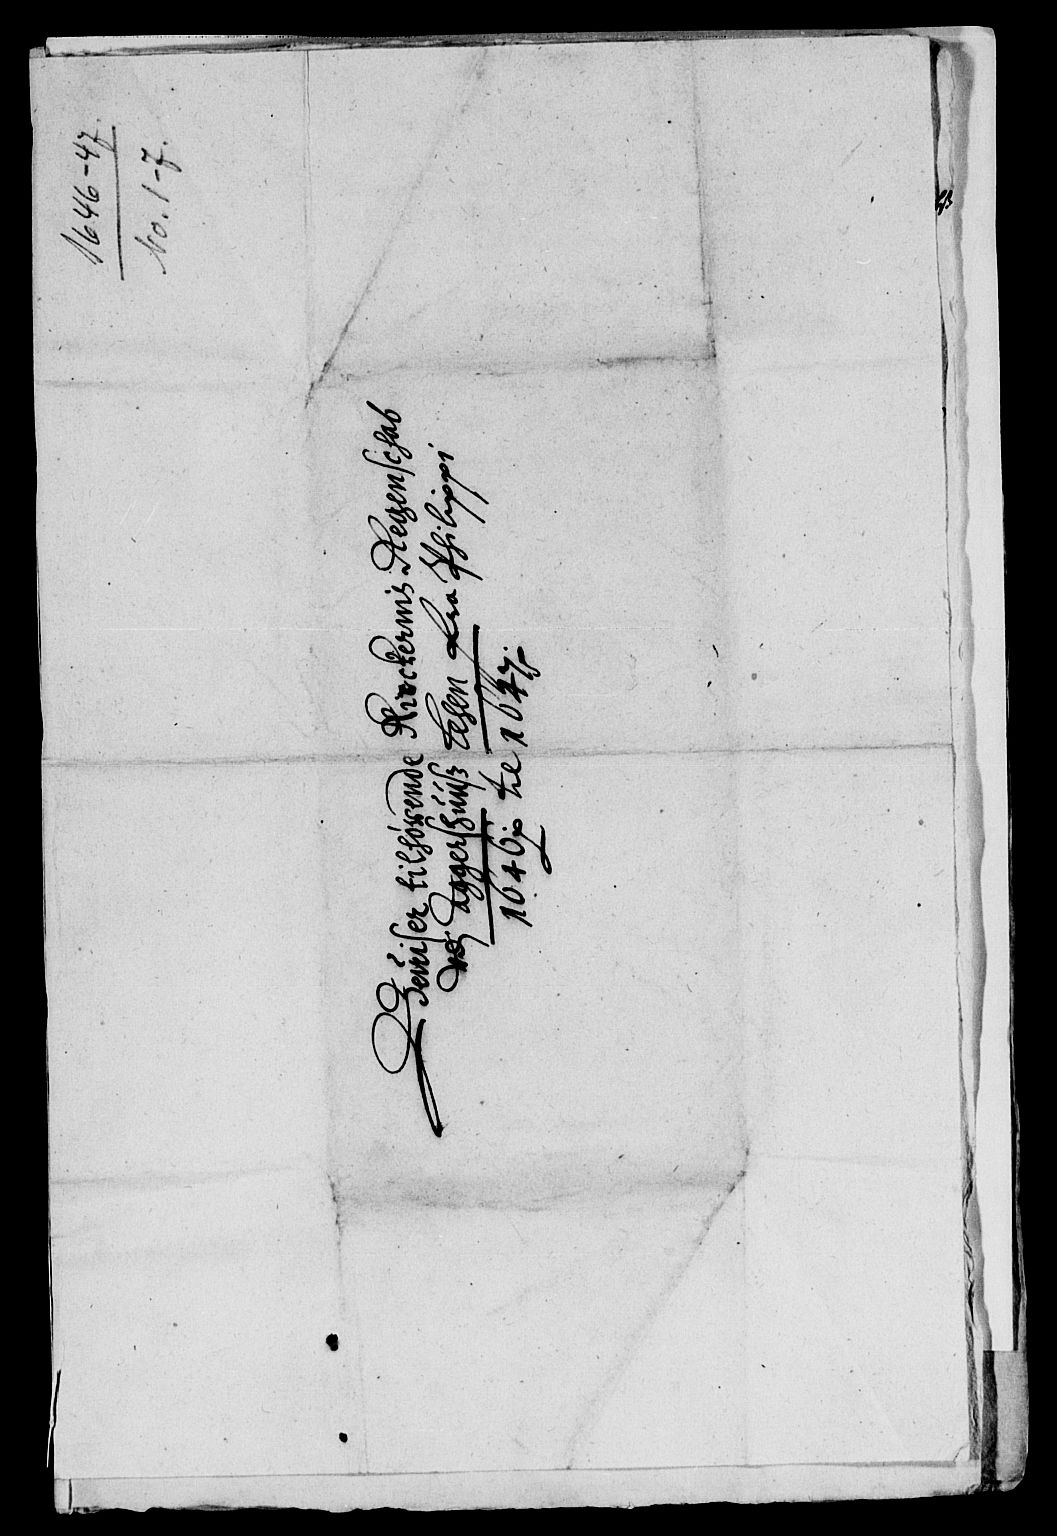 1646-47.
No. 1-7.
Beuiser tilhörende Kirckernis Regenschab
wed Aggershuuss Lehen fra Philippi
1646 te 1647.